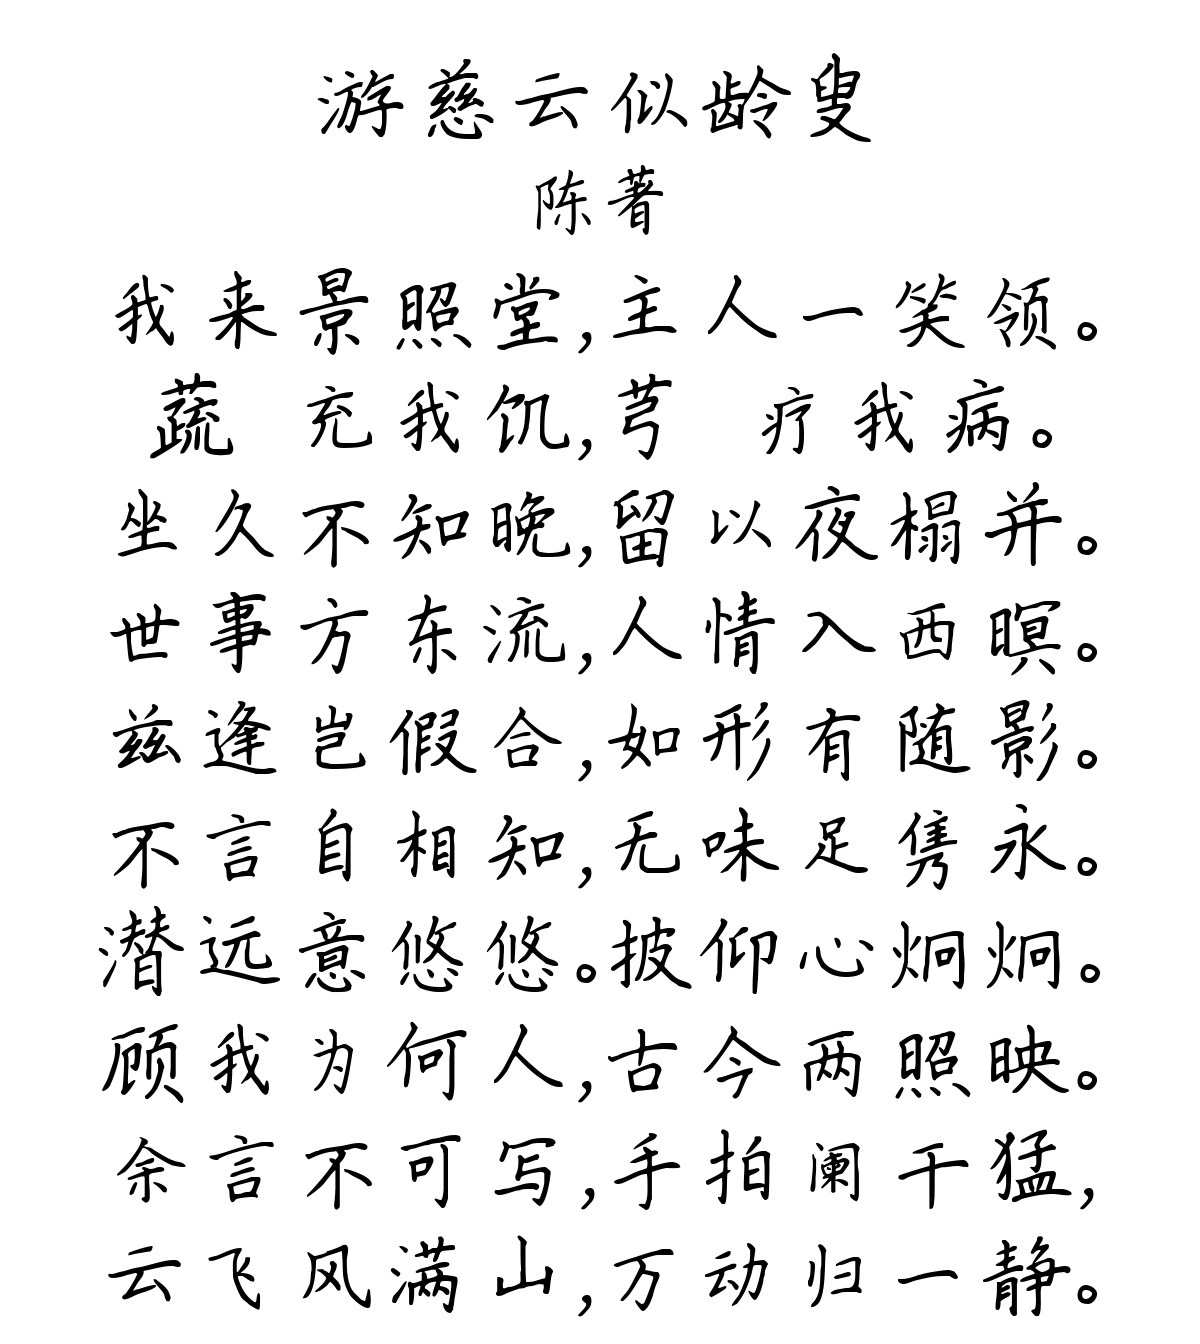 游慈云似龄叟
陈著
我来景照堂,主人一笑领。
蔬 充我饥,芎 疗我病。
坐久不知晚,留以夜榻并。
世事方东流,人情入西暝。
兹逢岂假合,如形有随影。
不言自相知,无味足隽永。
潜远意悠悠。披仰心炯炯。
顾我为何人,古今两照映。
余言不可写,手拍阑干猛,
云飞风满山,万动归一静。